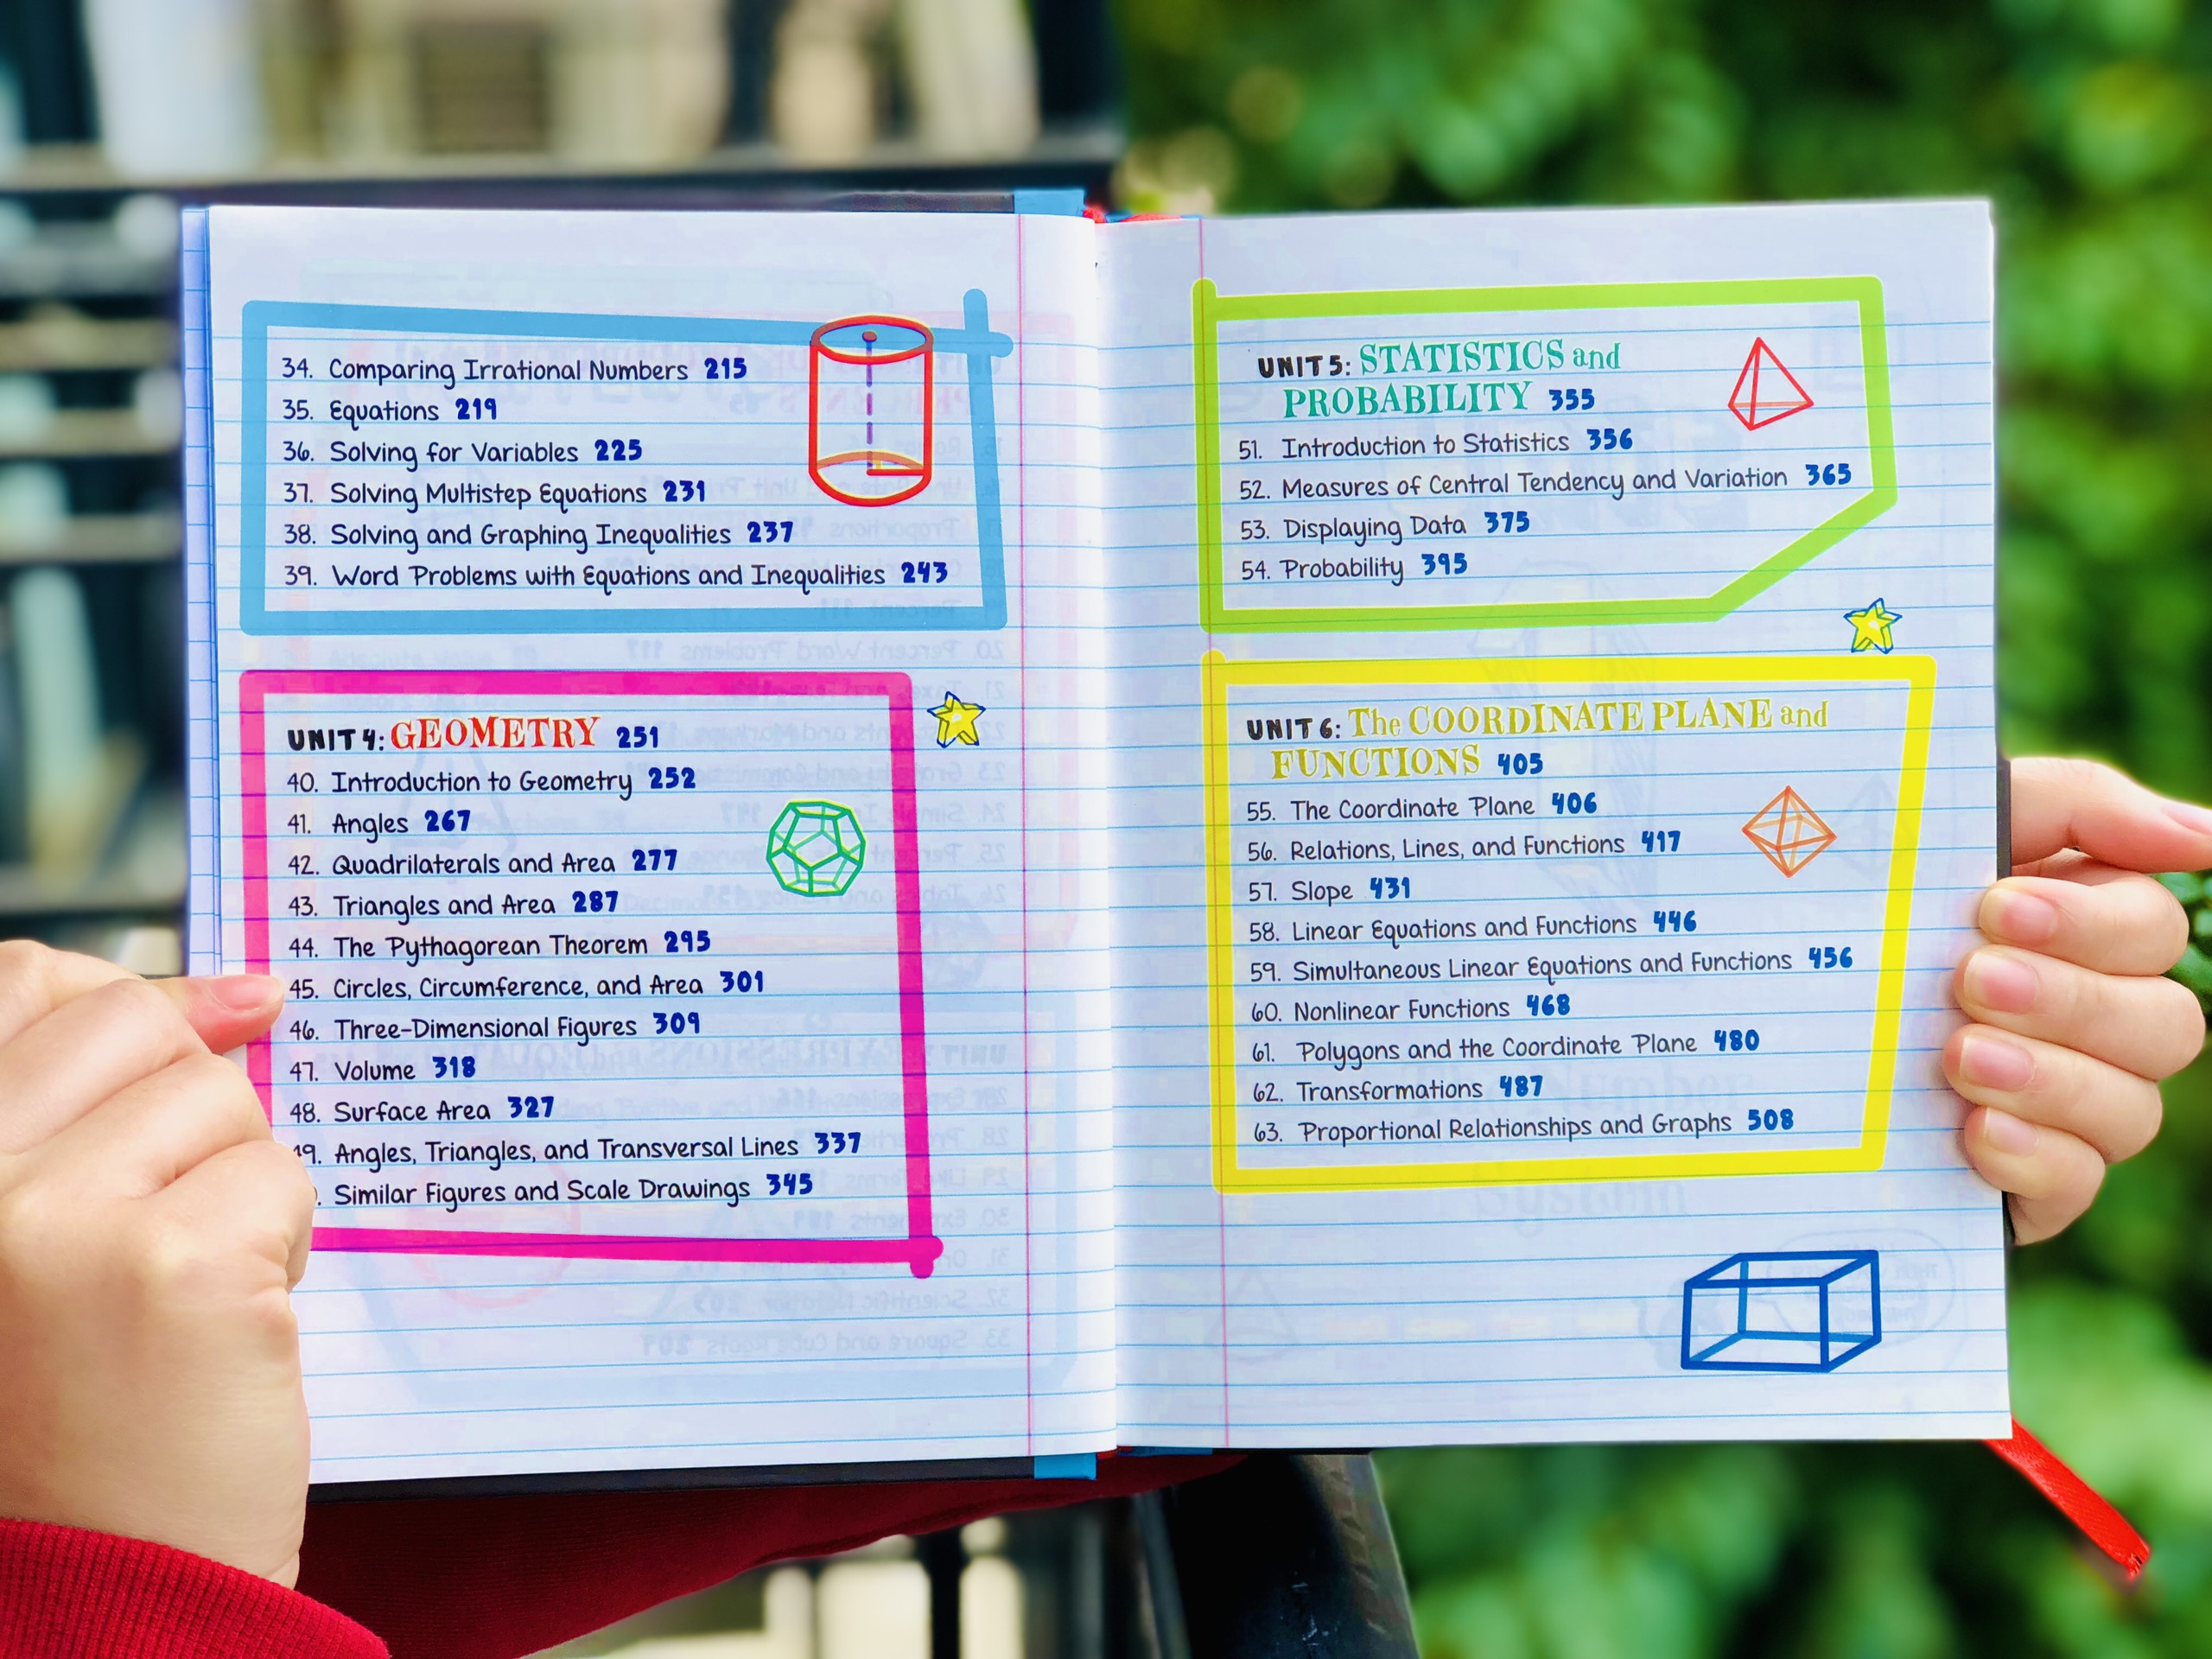 34. Comparing Irrational Numbers 215
35. Equations 219
36. Solving for Variables 225
37. Solving Multistep Equations 231
38. Solving and Graphing Inequalities 237
39. Word Problems with Equations and Inequalities 243
UNIT 4: GEOMETRY 251
40. Introduction to Geometry 252
41. Angles 267
42. Quadrilaterals and Area 277
43. Triangles and Area 287
44. The Pythagorean Theorem 295
45. Circles, Circumference, and Area 301
46. Three-Dimensional Figures 309
47. Volume 318
48. Surface Area 327
49. Angles, Triangles, and Transversal Lines 337
. Similar Figures and Scale Drawings 345
UNIT 5: STATISTICS and
PROBABILITY 355
51. Introduction to Statistics 356
52. Measures of Central Tendency and Variation 365
53. Displaying Data 375
54. Probability 395
UNIT 6: The COORDINATE PLANE and
FUNCTIONS 405
55. The Coordinate Plane 406
56. Relations, Lines, and Functions 417
57. Slope 431
58. Linear Equations and Functions 446
59. Simultaneous Linear Equations and Functions 456
60. Nonlinear Functions 468
61. Polygons and the Coordinate Plane 480
62. Transformations 487
63. Proportional Relationships and Graphs 508